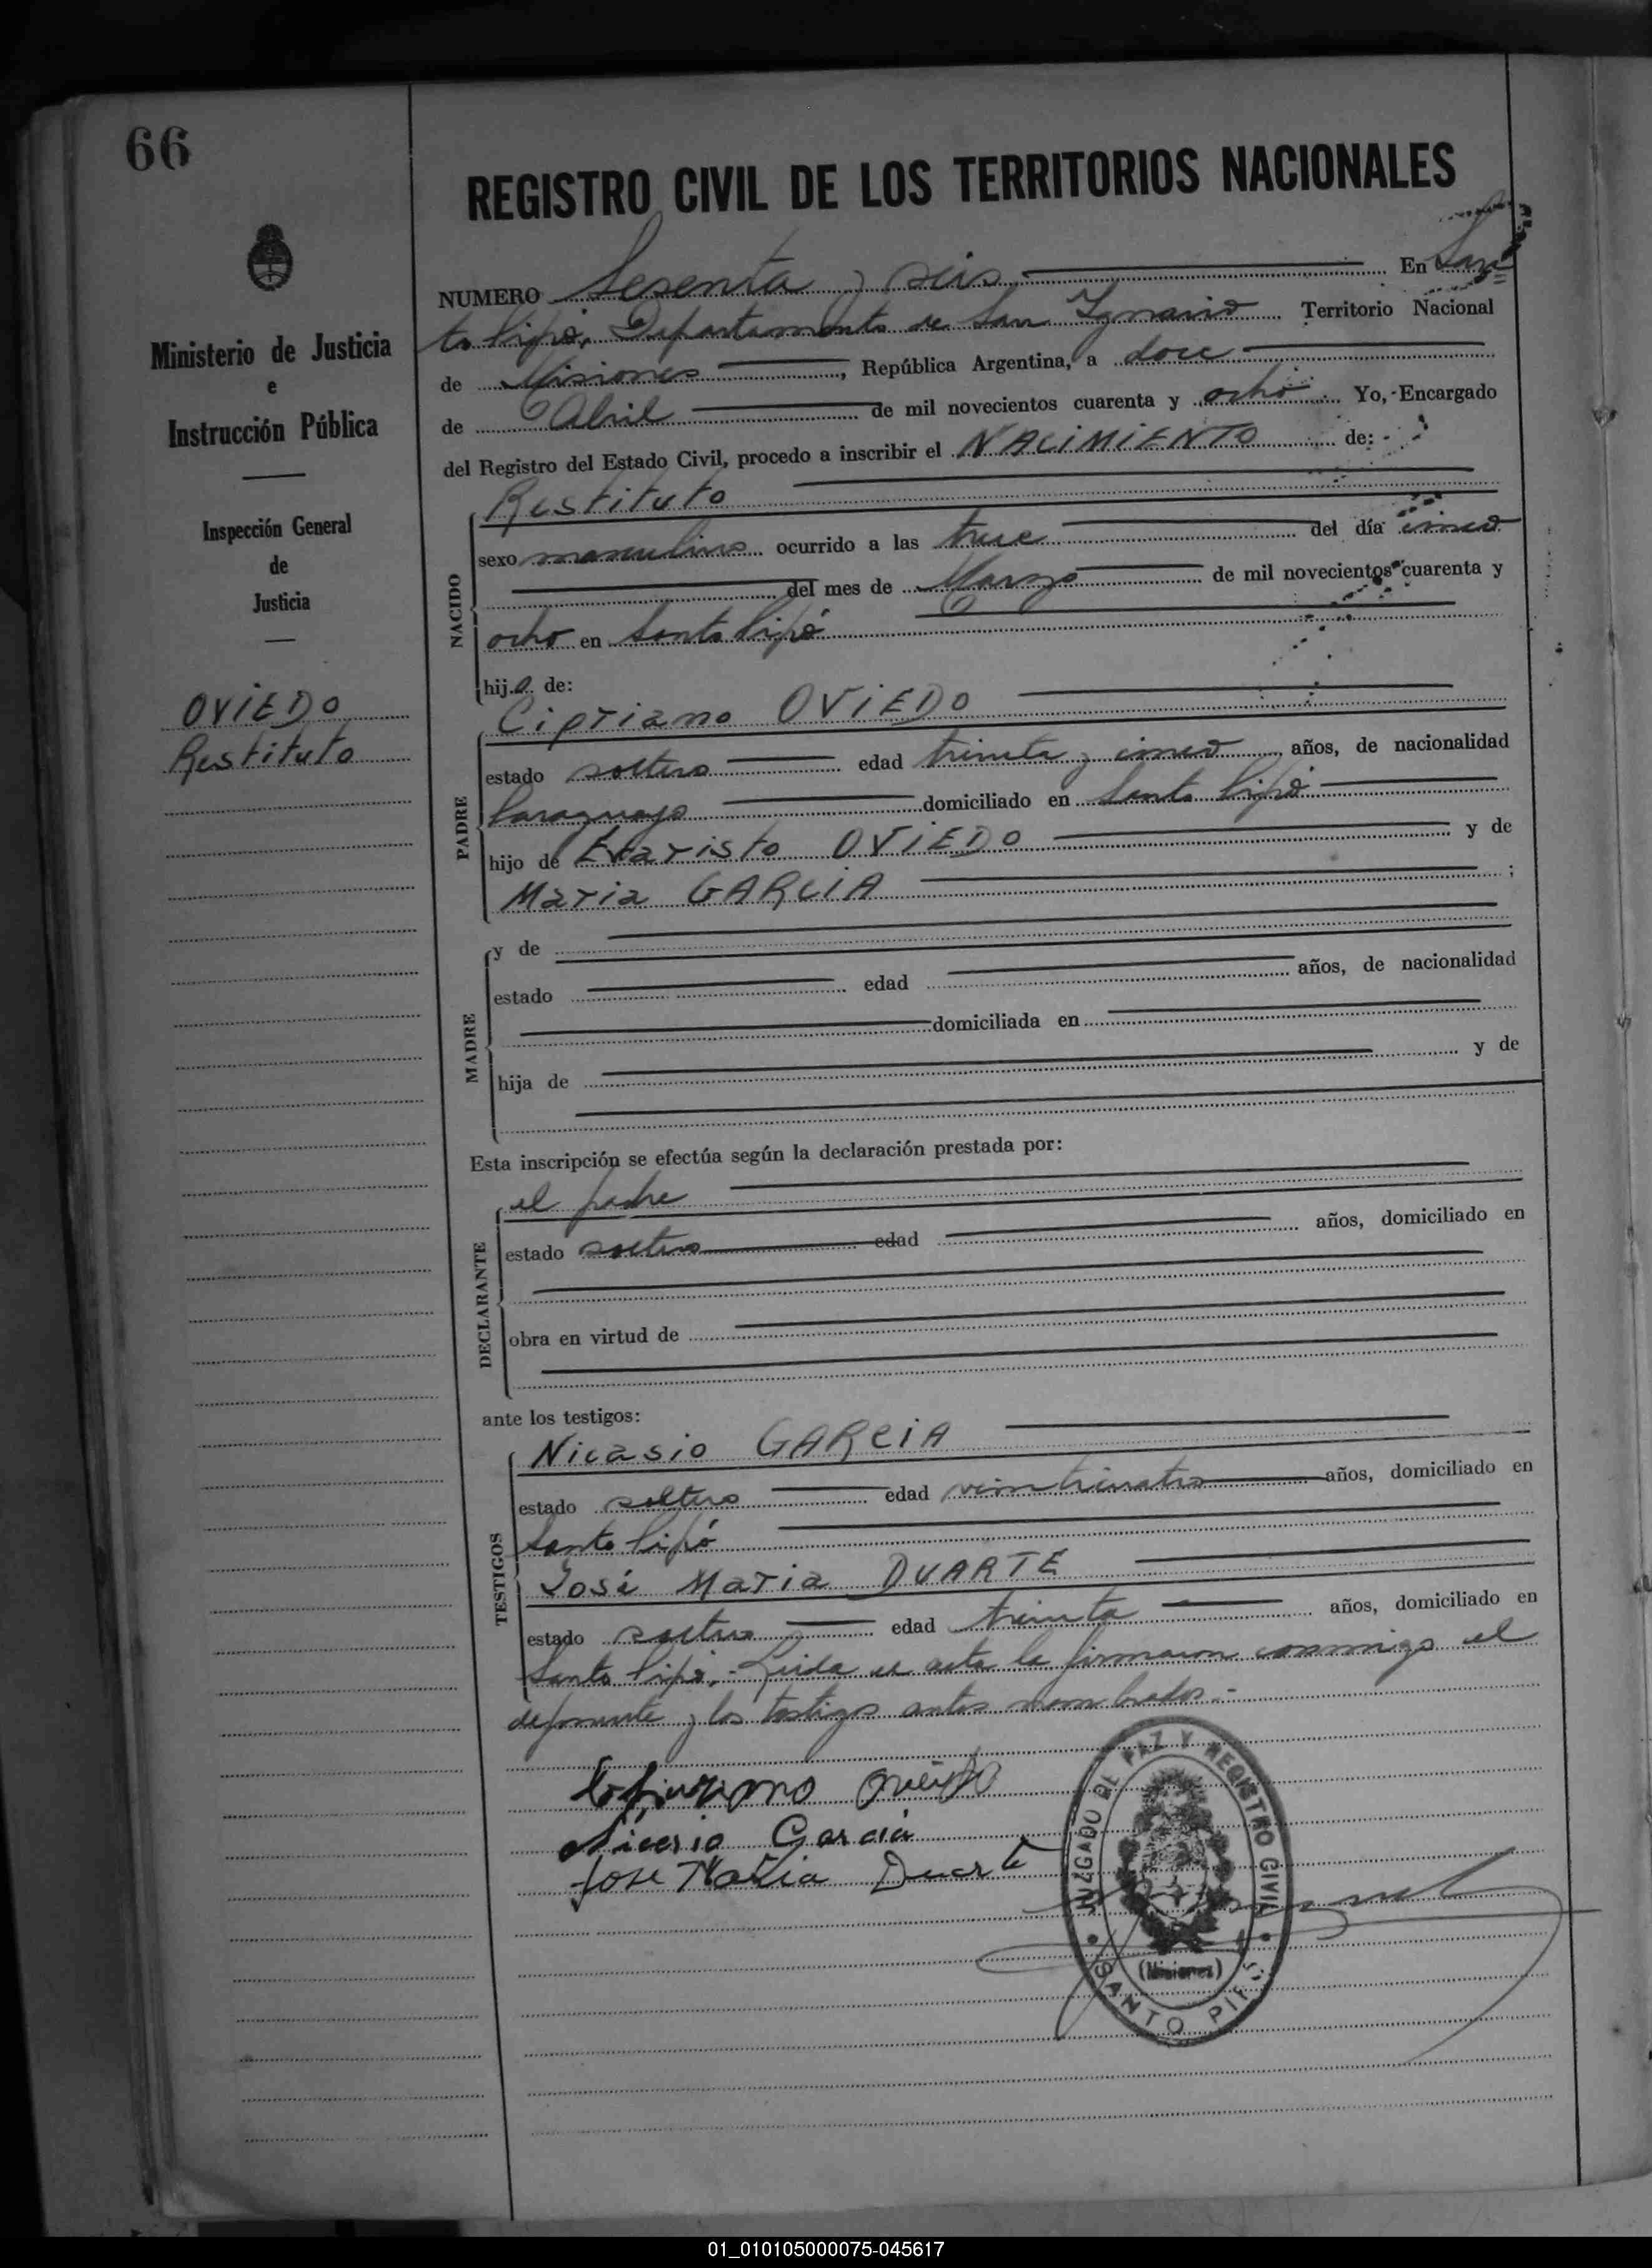 66
REGISTRO CIVIL DE LOS TERRITORIOS NACIONALES
NUMERO Sesenta y seis En San
to Pipó, Departamento de San Ignacio Territorio Nacional
de Misiones, República Argentina, a doce
de Abril de mil novecientos cuarenta y ocho Yo, Encargado
del Registro del Estado Civil, procedo a inscribir el NACIMIENTO de:
Ministerio de Justicia
e
Instrucción Pública
Inspección General
de
Justicia
OVIEDO
Restituto
NACIDO
Restituto
sexo masculino ocurrido a las trece del día cinco
del mes de Marzo de mil novecientos cuarenta y
ocho en Santo Pipó
hijo de:
PADRE
Cipriano OVIEDO
estado soltero edad treinta y cinco años, de nacionalidad
Paraguayo domiciliado en Santo Pipó
hijo de Evaristo OVIEDO y de
Maria GARCIA ;
MADRE
y de
estado edad años, de nacionalidad
domiciliada en
hija de y de
Esta inscripción se efectúa según la declaración prestada por:
DECLARANTE
el padre
estado soltero edad años, domiciliado en
obra en virtud de
ante los testigos:
TESTIGOS
Nicasio GARCIA
estado soltero edad veinticuatro años, domiciliado en
Santo Pipó
José Maria DUARTE
estado soltero edad treinta años, domiciliado en
Santo Pipó.- Leida el acta la firmaron conmigo el
deponente y los testigos antes nombrados.-
Oviedo
García
Jose Maria Duarte
JUZGADO DE PAZ Y REGISTRO CIVIL
(Misiones)
SANTO PIPÓ
01_010105000075-045617